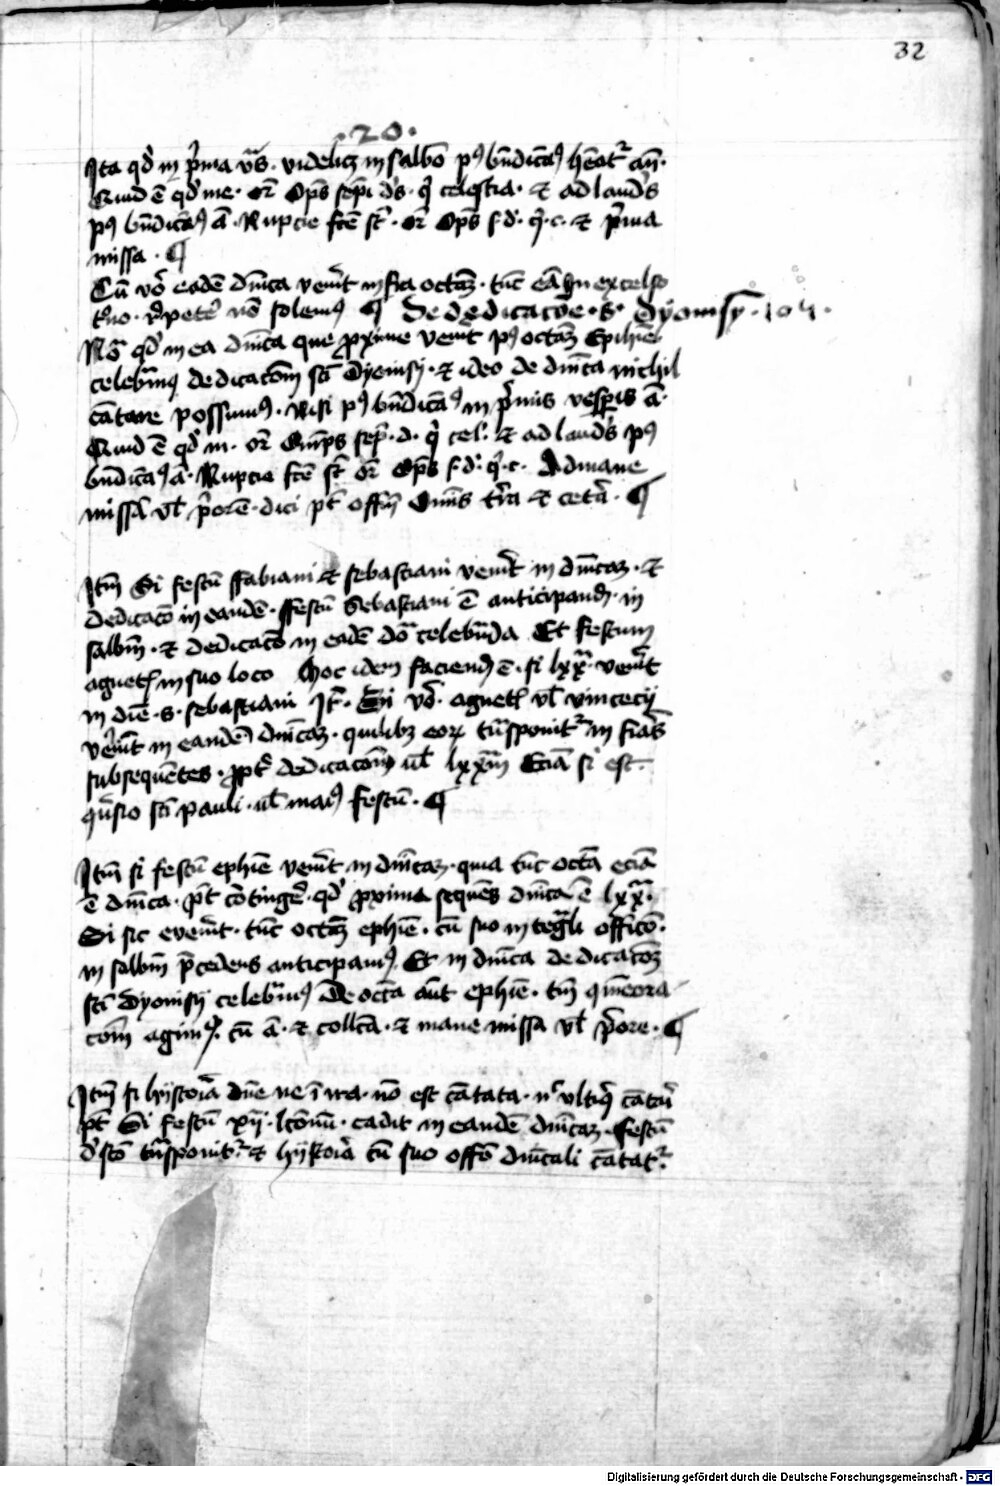 32
.20.
Ita qd in p̃ma vs̃. videlicz in sabbo p9 bn̄dicā9 hēat᷑ an̄.
Quid ē qd me. or̄ Op̄s sep̄i d's. q̄ celestia. et ad laud's
p9 bn̄dicā9 ā. Rupcie fc̄e st̄. or̄ Op̄s s. d. q̄. c. et p̃ma
missa. ¶
Cū v̄o eadē dn̄ica venit̄ infra octā3. tūc ēā In excelso
t̄no. r̄petē nō solem9 ¶ De dedicacōe. S. Dyonisy. 
Nō qd in ea dn̄ica que p̱xime venit p9 octā3 Epiph̄ie
celebram9 dedicacōm sc̄i Dyonisy. et ideo de dn̄ica nichil
cātare possum9. Nisi p9 bn̄dicā9 in p̄mis vesp̱is ā.
Quid ē qd m. or̄ Om̄ps sep̄. d. q̄ cel. et ad laud's p9
bn̄dicā9 ā. Rupcie fc̄e st̄ or̄ Op̄s s. d. q̄. c. Ad mane
missā vl̄ p̄orē. dici pt̄ offm̄ Om̄is t̄ra et cet̄a. ¶
Itm̄ Si festū ffabiani et sebastiani venit̄ in dn̄ica3. et
dedicacō in eandē. ffestū Sebastiani ē anticipand. in
sabbm̄. et dedicacō in eadē dn̄ica celebranda Et festum
agnet in suo loco Hoc idem faciend ē. si lxx̄. venit̄
in diē. S. sebastiani It̄. Si v̄o. agnet vl̄ vincecij
ven̄it in eandē dn̄ica3. quilib3 eor̄ t̄nsponit᷑ in fias
subsequētes. p̱pt̄ dedicacōm vl̄ lxx̄m Eciā si est
qūsio sc̄i pauli. vl̄ mai9 festū. ¶
Itm̄ si festū ephīe venit̄ in dn̄ica3. quia tūc octā eciā
ē dn̄ica. pt̄ cōtinge᷑. qd p̱xima sequēs dn̄ica ē lxx̄.
Si sic even̄it. tūc octā3 ephīe. cū suo integ̃li officō.
in sabbm̄ p̄cedens anticipam9. Et in dn̄ica dedicacōm
sc̄i Dyonisij celebram9 De octā aūt ephīe. tm̄ q̄meora
cōm agim9. cū ā. et collc̄a. et mane missa vl̄ p̄ore. ¶
Itm̄ si hystoīa dn̄e ne ī ira nō est cātata. n̄ vltiq̄ cātar̄
pt̄ Si festū xij. lc̄onū. cadit in eandē dn̄ica3. ffestū
d'stō t̄nsponit᷑. et hystoīa cū suo offō dn̄icali cātat᷑.
Digitalisierung gefördert durch die Deutsche Forschungsgemeinschaft · DFG